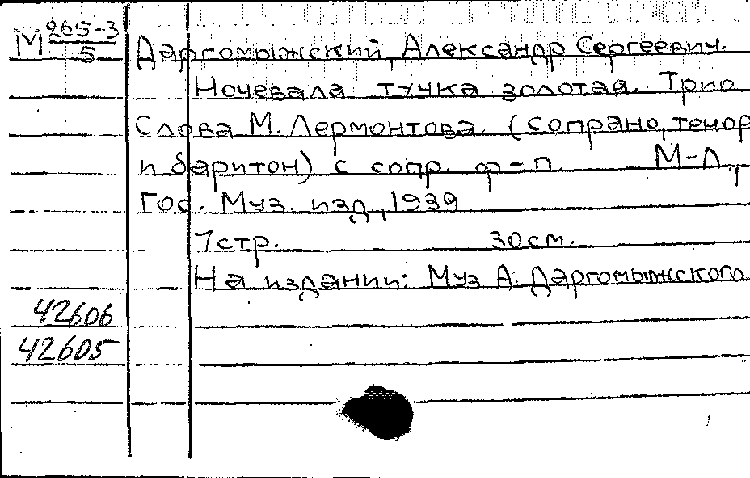 М 965-3
5
Даргомыжский, Александр Сергеевич.
Ночевала тучка золотая. Трио
Слова М. Лермонтова. (сопрано, тенор
и баритон) с сопр. ф-п. М-Л,
Гос. Муз. изд, 1939
7стр. 30см.
На издании: Муз А. Даргомыжского
42606
42605